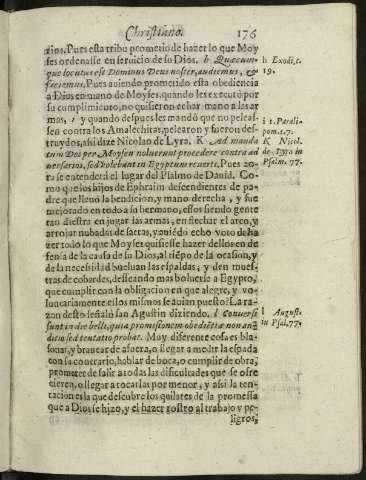 Christiano. 176
dios. Pues esta tribu prometio de hazer lo que Moy
ses ordenasse en seruicio de su Dios. h Quæcum-
que locutus est Dominus Deus noster, audiemus, &
faciemus, Pues auiendo prometido esta obediencia
a Dios en mano de Moyses, quando les executò por
su cumplimiento, no quisieron echar mano a las ar
mas, i y quando despues les mandò que no peleas-
sen contra los Amalechitas, pelearon y fueron des-
truydos, assi dize Nicolao de Lyra. K Ad manda
tum Dei per Moysen noluerunt procedere contra ad
uersarios, sed volebant in Egyptum reuerti, Pues ao-
ra se entenderà el lugar del Psalmo de Dauid. Co-
mo que los hijos de Ephraim descendientes de pa-
dre que lleuò la bendicion, y mano derecha, y fue
mejorado en todo a su hermano, essos siendo gente
tan diestra en jugar las armas, en flechar el arco, y
arrojar nubadas de saetas, y auiēdo echo voto de ha
zer todo lo que Moyses quisiesse hazer dellos en de
fensa de la causa de su Dios, al tiēpo de la ocasion, y
de la necesidad bueluan las espaldas, y den mues-
tras de cobardes, desseando mas boluerse a Egypto,
que cumplir con la obligacion en que alegre, y vo-
luntariamente ellos mismos se auian puesto? La ra-
zon desto señalò san Agustin diziendo. l Conuersi
sunt in die belli, quia promissionem obedientiæ non au-
ditus sed tentatio probat. Muy diferente cosa es bla-
sonar, y brauear de afuera, o llegar a medir la espada
con su contrario, hablar de boca, o cumplir de obra,
prometer de salir a todas las dificultades que se ofre
cieren, o llegar a tocarlas por menor, y assi la ten-
tacion es la que descubre los quilates de la promessa
que a Dios se hizo, y el hazer rostro al trabajo y pe-
ligros,
h Exodi, c.
19.
i 1. Parali-
pom. c. 7.
K Nicol.
de Lyra in
Psalm. 77.
l August.
in Psal. 77.